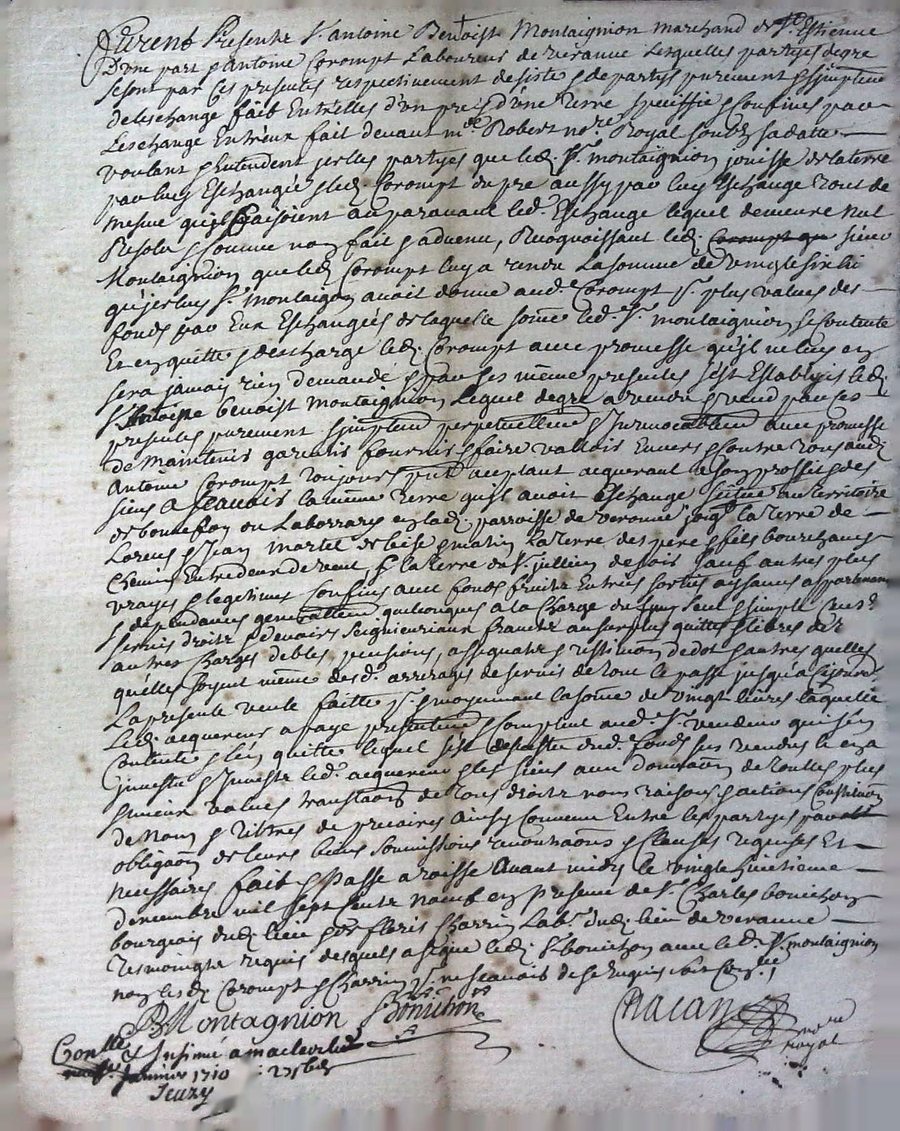 Furent Presents Sr antoine Benoist Montaignion marchand de St Estienne
D'une part & antoine Corompt Laboureur de veranne Lesquelles partyes de gre
se sont par ces presentes respectivement desiste & departys purement & simplemt
de leschange fait Entr'elles d'un pre & d'une terre speciffie & confines par
Leschange Entr'eux fait devant me Robert nore Royal soubz sa datte
voulant & Entendent jcelles partyes que led. Sr. montaignion jouisse de la terre
par luy Eschangée & led. Corompt du pre aussy par luy Eschange tout de
mesme qu'jls faisoient auparavant led. Eschange lequel demeure nul
Resolu & comme non fait & advenu, Recognoissant led. sieur
Montaignion que led. Corompt luy a rendu La somme de vingt six
qu'jceluy Sr. montaignon avoit donne aud. Corompt pr. plus values des
fonds par Eux Eschangés de laquelle some led. Sr. montaignion se contente
Et en quitte & descharge led. Corompt avec promesse qu'jl ne luy en
sera jamais rien demandé & par ses même presentes s'est Estably led.
Sr Antoine benoist montaignion Lequel de gre a vendu & vend par ces
presentes purement simplemt perpetuellemt & Jrrevocablemt avec promesse
de maintenir garentir fournir & faire valloir Envers & contre tous aud.
Antoine Corompt toujours pnt acceptant acquerant a son proffit & des
siens a scavoir la même terre qu'jl avoit Eschange scituée au territoire
de bonnefon ou Laborrary en lad. parroisse de veranne joigt la terre de
Lorens & Jean martel de bise & matin La terre des pere & fils bourchany
chemin Entredeux de vent, & la terre du Sr. jullien de soir sauf autres plus
vrayes & legetimes Confins avec fonds fruits Entrées sorties aisances appartenances
& dependances generallemt quelconques a la charge du seul & simple cens &
servis droits & devoirs seignieuriaux francts au surplus quittes & libres de ts
autres charges debtes pensions, assignats restitution de dot & autres quelles
qu'elles soyent même desd. arrerages de servis de tout le passe jusqu'a ce jourd.
La presente vente faitte pr. & moyennant la some de vingt livres laquelle
Led. acquereur a paye presentemt & Comptent aud. Sr. vendeur qui s'en
Contente & l'en quitte lequel s'est desaisy dud. fonds par vendu & en a
jnvestu & Jnvestit led. acquereur & les siens avec donnaon de touttes plus
& mieux values translaon de tous droits noms raisons & actions constituon
de nom & tiltres de precaires ainsy Convenu Entre les partyes par
obligaon de leurs biens soumissions renontiaons & clauses requises Et
necessaires fait & Passe a roisse avant midy le vingt huictieme
decembre mil sept cents noeuf en presence de Sr. Charles bonichon
bourgeois dud. lieu & de fleris Charrin Labr dud. lieu de veranne
tesmoingts requis desquels a signe led. Sr bonichon avec led. Sr. montaignion
non led. Corompt & Charrin pr. ne scavoir de ce Enquis
BMontagnion Bonichon Chacan
nore
royal
Conlle & Jnsinué a maclevilled
janvier 1710